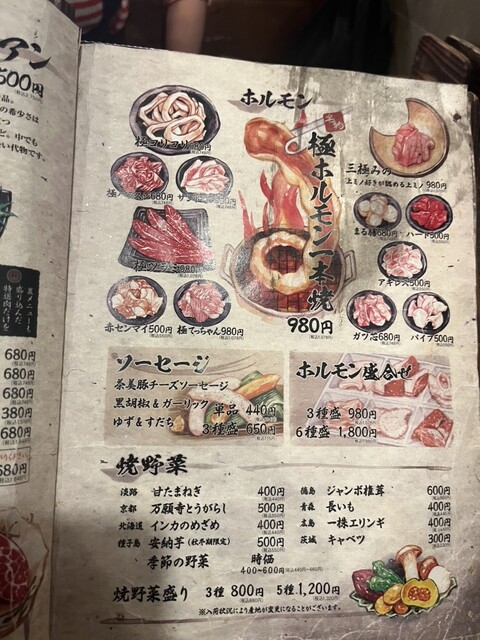 500円
680円
680円
680円
380円
680円
680円
ホルモン
極ホルモン一本焼
980円
極コリコリ
680円
極ツラミ
赤センマイ500円
極てっちゃん980円
三極みの
上ミノ好きが認める上ミノ980円
まる腸680円
ハート500円
アキレス500円
ガツ芯680円
パイプ500円
ソーセージ
茶美豚チーズソーセージ
黒胡椒&ガーリック
ゆず&すだち
単品 440円
3種盛 650円
ホルモン盛合せ
3種盛 980円
6種盛 1,800円
焼野菜
淡路 甘たまねぎ 400円
京都 万願寺とうがらし 500円
北海道 インカのめざめ 400円
種子島 安納芋(秋冬期限定) 500円
季節の野菜 時価
400~600円
徳島 ジャンボ椎茸 600円
青森 長いも 400円
広島 一株エリンギ 400円
茨城 キャベツ 300円
焼野菜盛り 3種 800円 5種 1,200円
※入荷状況により産地が変更になることがございます。